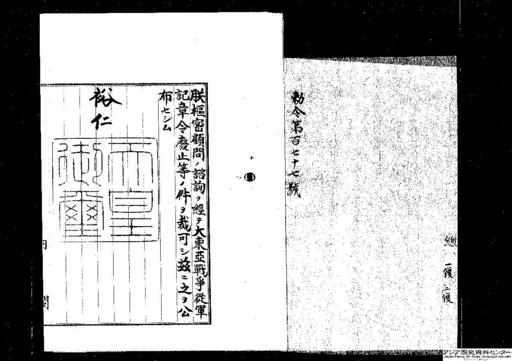 勅令第百七十七號
朕樞密顧問ノ諮詢ヲ經テ大東亞戰爭從軍
記章令廢止等ノ件ヲ裁可シ茲ニ之ヲ公
布セシム
裕仁
天皇
御璽
内閣
總
一復 二復
アジア歴史資料センター